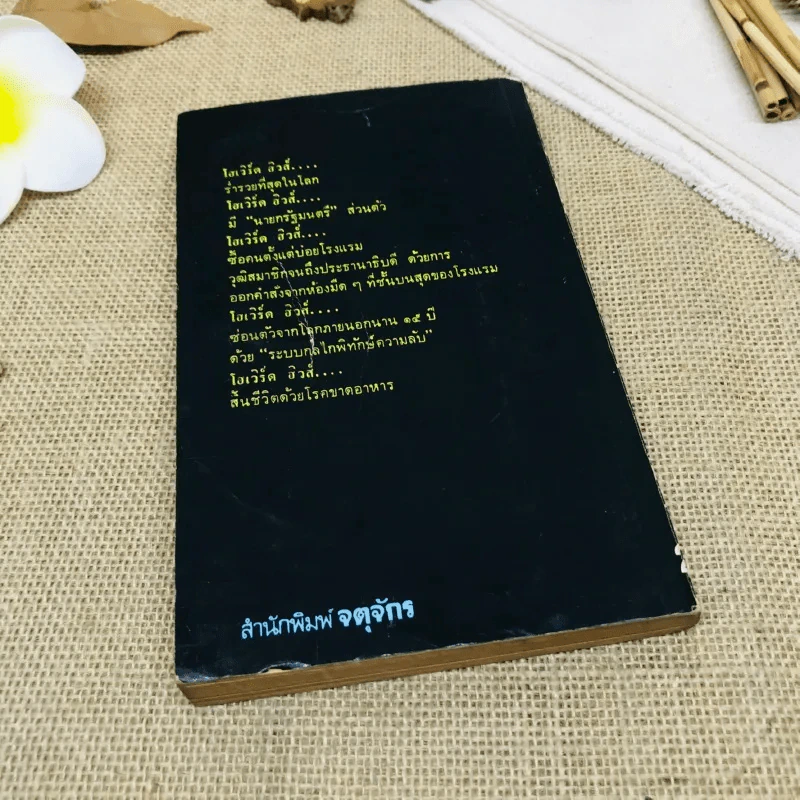 โฮเวิร์ด ฮิวส์....
ร่ำรวยที่สุดในโลก
โฮเวิร์ด ฮิวส์....
มี "นายกรัฐมนตรี" ส่วนตัว
โฮเวิร์ด ฮิวส์....
ซื้อคนตั้งแต่บ๋อยโรงแรม
วุฒิสมาชิกจนถึงประธานาธิบดี ด้วยการ
ออกคำสั่งจากห้องมืด ๆ ที่ชั้นบนสุดของโรงแรม
โฮเวิร์ด ฮิวส์....
ซ่อนตัวจากโลกภายนอกนาน ๑๕ ปี
ด้วย "ระบบกลไกพิทักษ์ความลับ"
โฮเวิร์ด ฮิวส์....
สิ้นชีวิตด้วยโรคขาดอาหาร
สำนักพิมพ์ จตุจักร